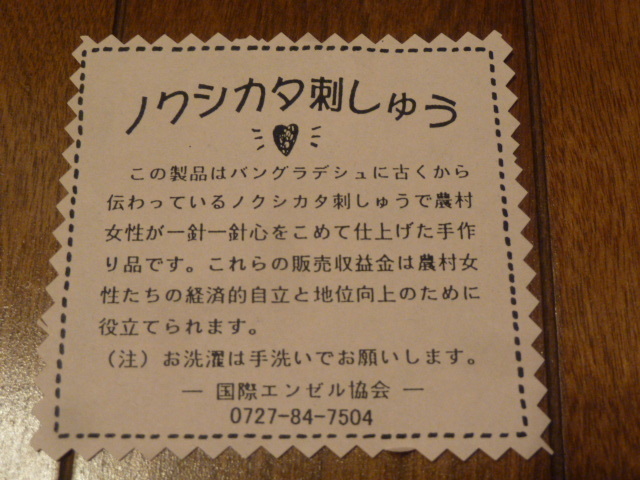 ノクシカタ刺しゅう
この製品はバングラデシュに古くから
伝わっているノクシカタ刺しゅうで農村
女性が一針一針心をこめて仕上げた手作
り品です。これらの販売収益金は農村女
性たちの経済的自立と地位向上のために
役立てられます。
（注）お洗濯は手洗いでお願いします。
― 国際エンゼル協会 ―
0727-84-7504